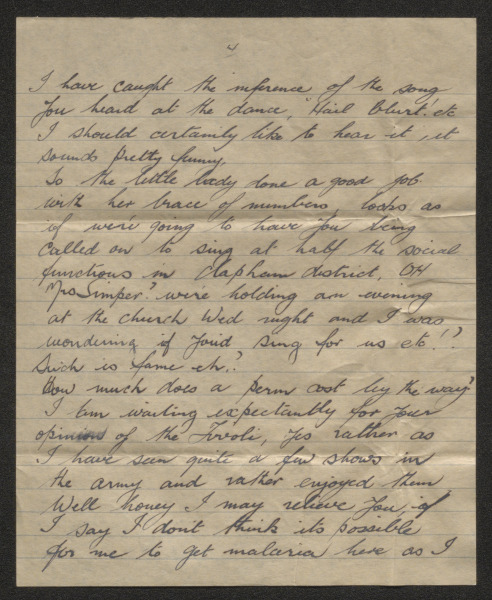 4
I have caught the inference of the song
You heard at the dance, "Hail etc
I should certainly like to hear it, it
sounds pretty funny.
So the little lady done a good job
with her brace of numbers, looks as
if we're going to have You being
Called on to sing at half the social
functions in Clapham district. OH
Mrs Simper? we're holding an evening
at the church Wed night and I was
wondering if You'd sing for us etc!?
Such is fame eh.?
How much does a perm cost by the way?
I am waiting expectantly for Your
opinion of the Tivoli, Yes rather as
I have seen quite a few shows in
the army and rather enjoyed them
Well honey I may relieve You, if
I say I don't think its possible
for me to get malaria here as I